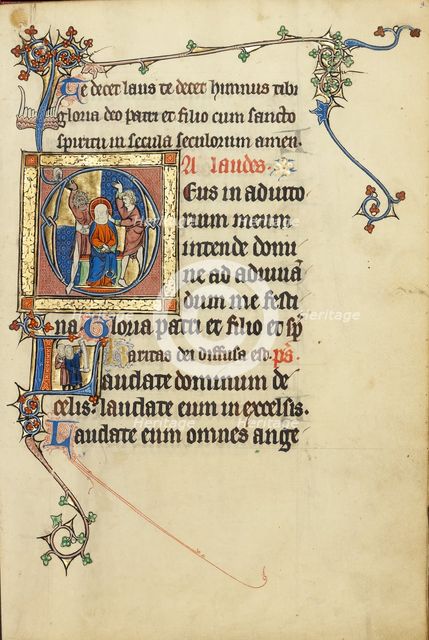 Te decet laus te decet himnus tibi
gloria deo patri et filio cum sancto
spiritu in secula seculorum amen.
A laudes.
Deus in aduito
rium meum
intende domi
ne ad adiuuā
dum me festi
na Gloria patri et filio et sp
Karitas dei diffusa est. ps.
Laudate dominum de
celis: laudate eum in excelsis.
Laudate eum omnes ange
Heritage
Heritage
Heritage
Heritage
Heritage
Heritage